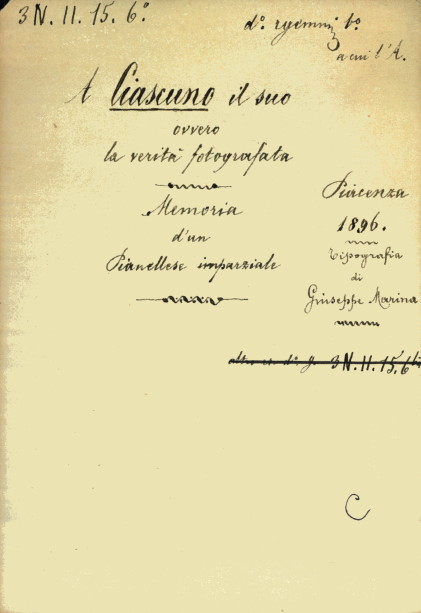 3 N. II. 15. 6°
d°.
a cui l'A.
A Ciascuno il suo
ovvero
la verità fotografata
Memoria
d'un
Pianellese imparziale
Piacenza
1896.
Tipografia
di
Giuseppe Marina
3 N. II. 15. 6
C